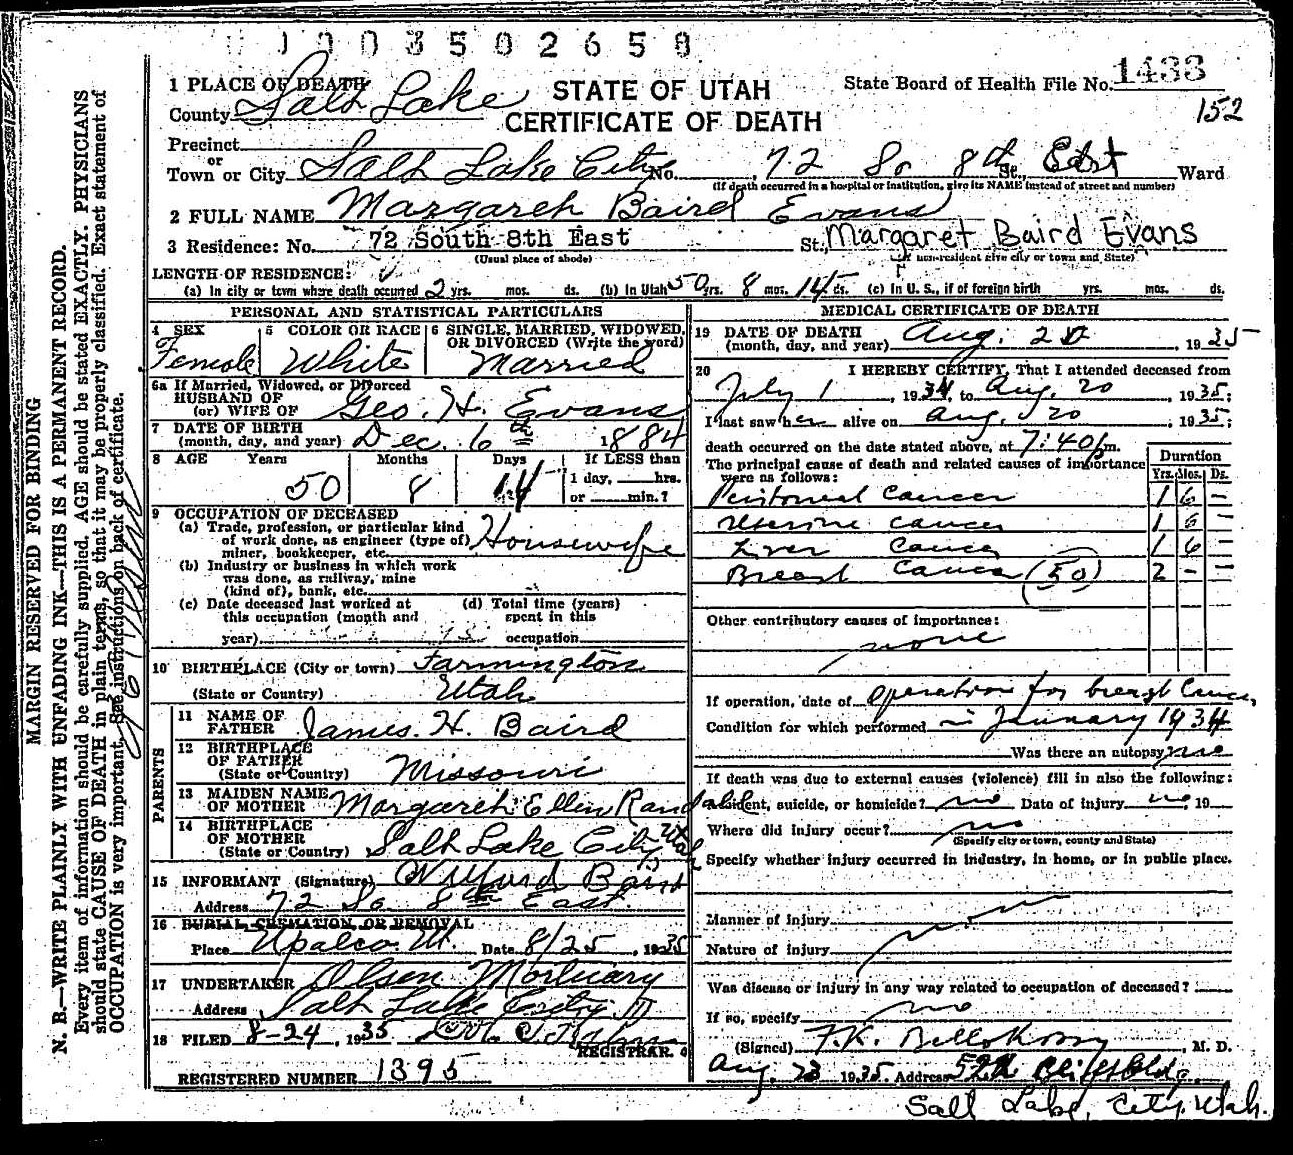 0 1 0 0 3 5 0 2 6 5 8
1 PLACE OF DEATH
County Salt Lake
STATE OF UTAH
CERTIFICATE OF DEATH
State Board of Health File No. 1433
152
Precinct
or
Town or City Salt Lake City No. 72 So 8th St., East Ward
(If death occurred in a hospital or institution, give its NAME instead of street and number)
2 FULL NAME Margaret Baird Evans
3 Residence: No. 72 South 8th East St. Margaret Baird Evans
(Usual place of abode) (If non-resident give city or town and State)
LENGTH OF RESIDENCE:
(a) In city or town where death occurred 2 yrs. mos. ds. (b) In Utah 50 yrs. 8 mos. 14 ds. (c) In U. S., if of foreign birth yrs. mos. ds.
PERSONAL AND STATISTICAL PARTICULARS
4 SEX Female
5 COLOR OR RACE White
6 SINGLE, MARRIED, WIDOWED, OR DIVORCED (Write the word) Married
6a If Married, Widowed, or Divorced
HUSBAND OF
(or) WIFE OF Geo. H. Evans
7 DATE OF BIRTH
(month, day, and year) Dec. 6th 1884
8 AGE Years Months Days If LESS than
50 8 14 1 day, hrs.
or min.?
9 OCCUPATION OF DECEASED
(a) Trade, profession, or particular kind
of work done, as engineer (type of)
miner, bookkeeper, etc. Housewife
(b) Industry or business in which work
was done, as railway, mine
(kind of), bank, etc.
(c) Date deceased last worked at
this occupation (month and
year)
(d) Total time (years)
spent in this
occupation
10 BIRTHPLACE (City or town) Farmington
(State or Country) Utah
PARENTS
11 NAME OF
FATHER James. H. Baird
12 BIRTHPLACE
OF FATHER
(State or Country) Missouri
13 MAIDEN NAME
OF MOTHER Margaret Ellen Randall
14 BIRTHPLACE
OF MOTHER
(State or Country) Salt Lake City Utah
15 INFORMANT (Signature) Wilford Baird
Address 72 So 8th East.
16 BURIAL, CREMATION, OR REMOVAL
Place Upalco Ut. Date 8/25, 1935
17 UNDERTAKER Olsen Mortuary
Address Salt Lake City
18 FILED 8-24, 1935
REGISTRAR.
REGISTERED NUMBER 1395
MEDICAL CERTIFICATE OF DEATH
19 DATE OF DEATH
(month, day, and year) Aug. 20, 1935
20 I HEREBY CERTIFY, That I attended deceased from
July 1, 1934, to Aug. 20, 1935;
I last saw her alive on Aug. 20, 1935;
death occurred on the date stated above, at 7:40 p m.
The principal cause of death and related causes of importance
were as follows:
Duration
Yrs. Mos. Ds.
Peritoneal cancer 1 6 –
Uterine cancer 1 6 –
Liver cancer 1 6 –
Breast cancer (50) 2 – –
Other contributory causes of importance:
none
If operation, date of operation for breast Cancer,
Condition for which performed in January 1934
Was there an autopsy no
If death was due to external causes (violence) fill in also the following:
Accident, suicide, or homicide? no Date of injury no 19
Where did injury occur? no
(Specify city or town, county and State)
Specify whether injury occurred in industry, in home, or in public place.
Manner of injury no
Nature of injury no
Was disease or injury in any way related to occupation of deceased?
If so, specify no
(Signed) F.K. , M. D.
Aug 23 1935. Address
Salt Lake, City, Utah.
MARGIN RESERVED FOR BINDING
N. B.—WRITE PLAINLY WITH UNFADING INK—THIS IS A PERMANENT RECORD.
Every item of information should be carefully supplied. AGE should be stated EXACTLY. PHYSICIANS
should state CAUSE OF DEATH in plain terms, so that it may be properly classified. Exact statement of
OCCUPATION is very important. See instructions on back of certificate.